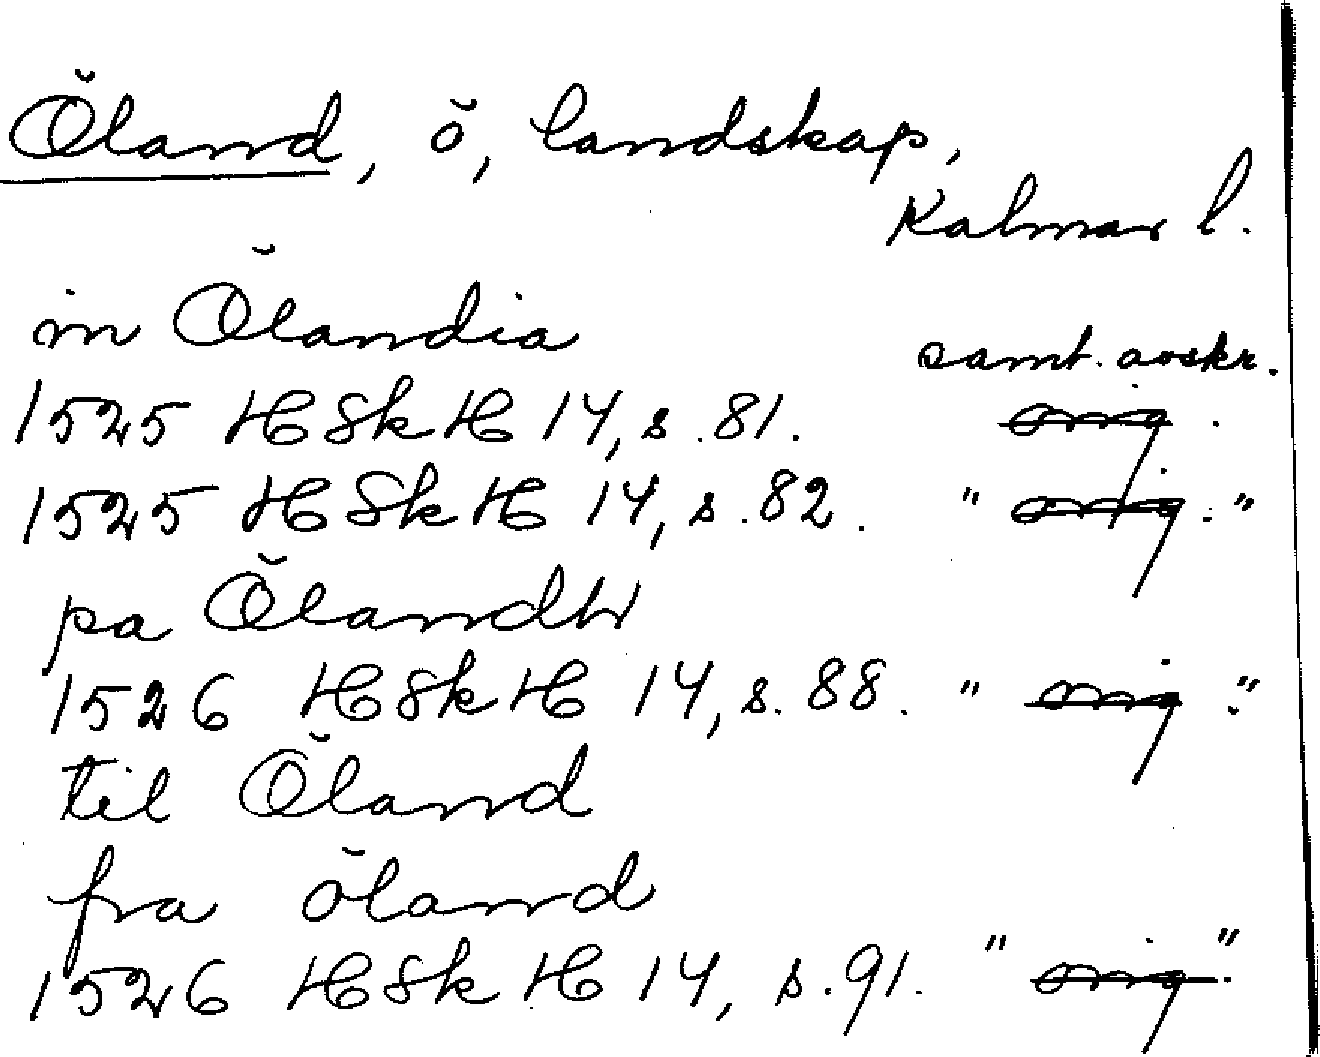 Öland, ö, landskap,
Kalmar l.
in Ölandia
samt. avskr.
1525 HSkH 14, s. 81. orig.
1525 HSkH 14, s. 82. " orig. "
pa Ölandh
1526 HSkH 14, s. 88. " orig. "
til Öland
fra öland
1526 HSkH 14, s. 91. " orig. "